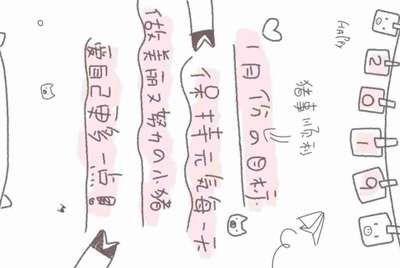 HAPPY
2019
猪事顺利
1月份の目标
保持元气每一天
做美丽又努力の小猪
爱自己更多一点